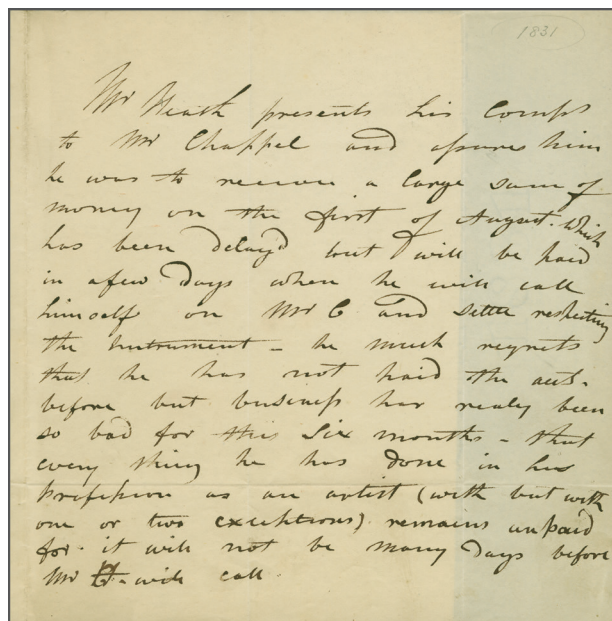 1831
Mr Heath presents his Comps
to Mr Chappel and assures him
he was to receive a large sum of
money on the first of August. which
has been delayd but will be paid
in a few days when he will call
himself on Mr C and settle respecting
the instrument - he much regrets
that he has not paid the act.
before but business has realy been
so bad for this six months - that
every thing he has done in his
profession as an artist (with but with
one or two exceptions) remains unpaid
for. it will not be many days before
Mr H- will call.